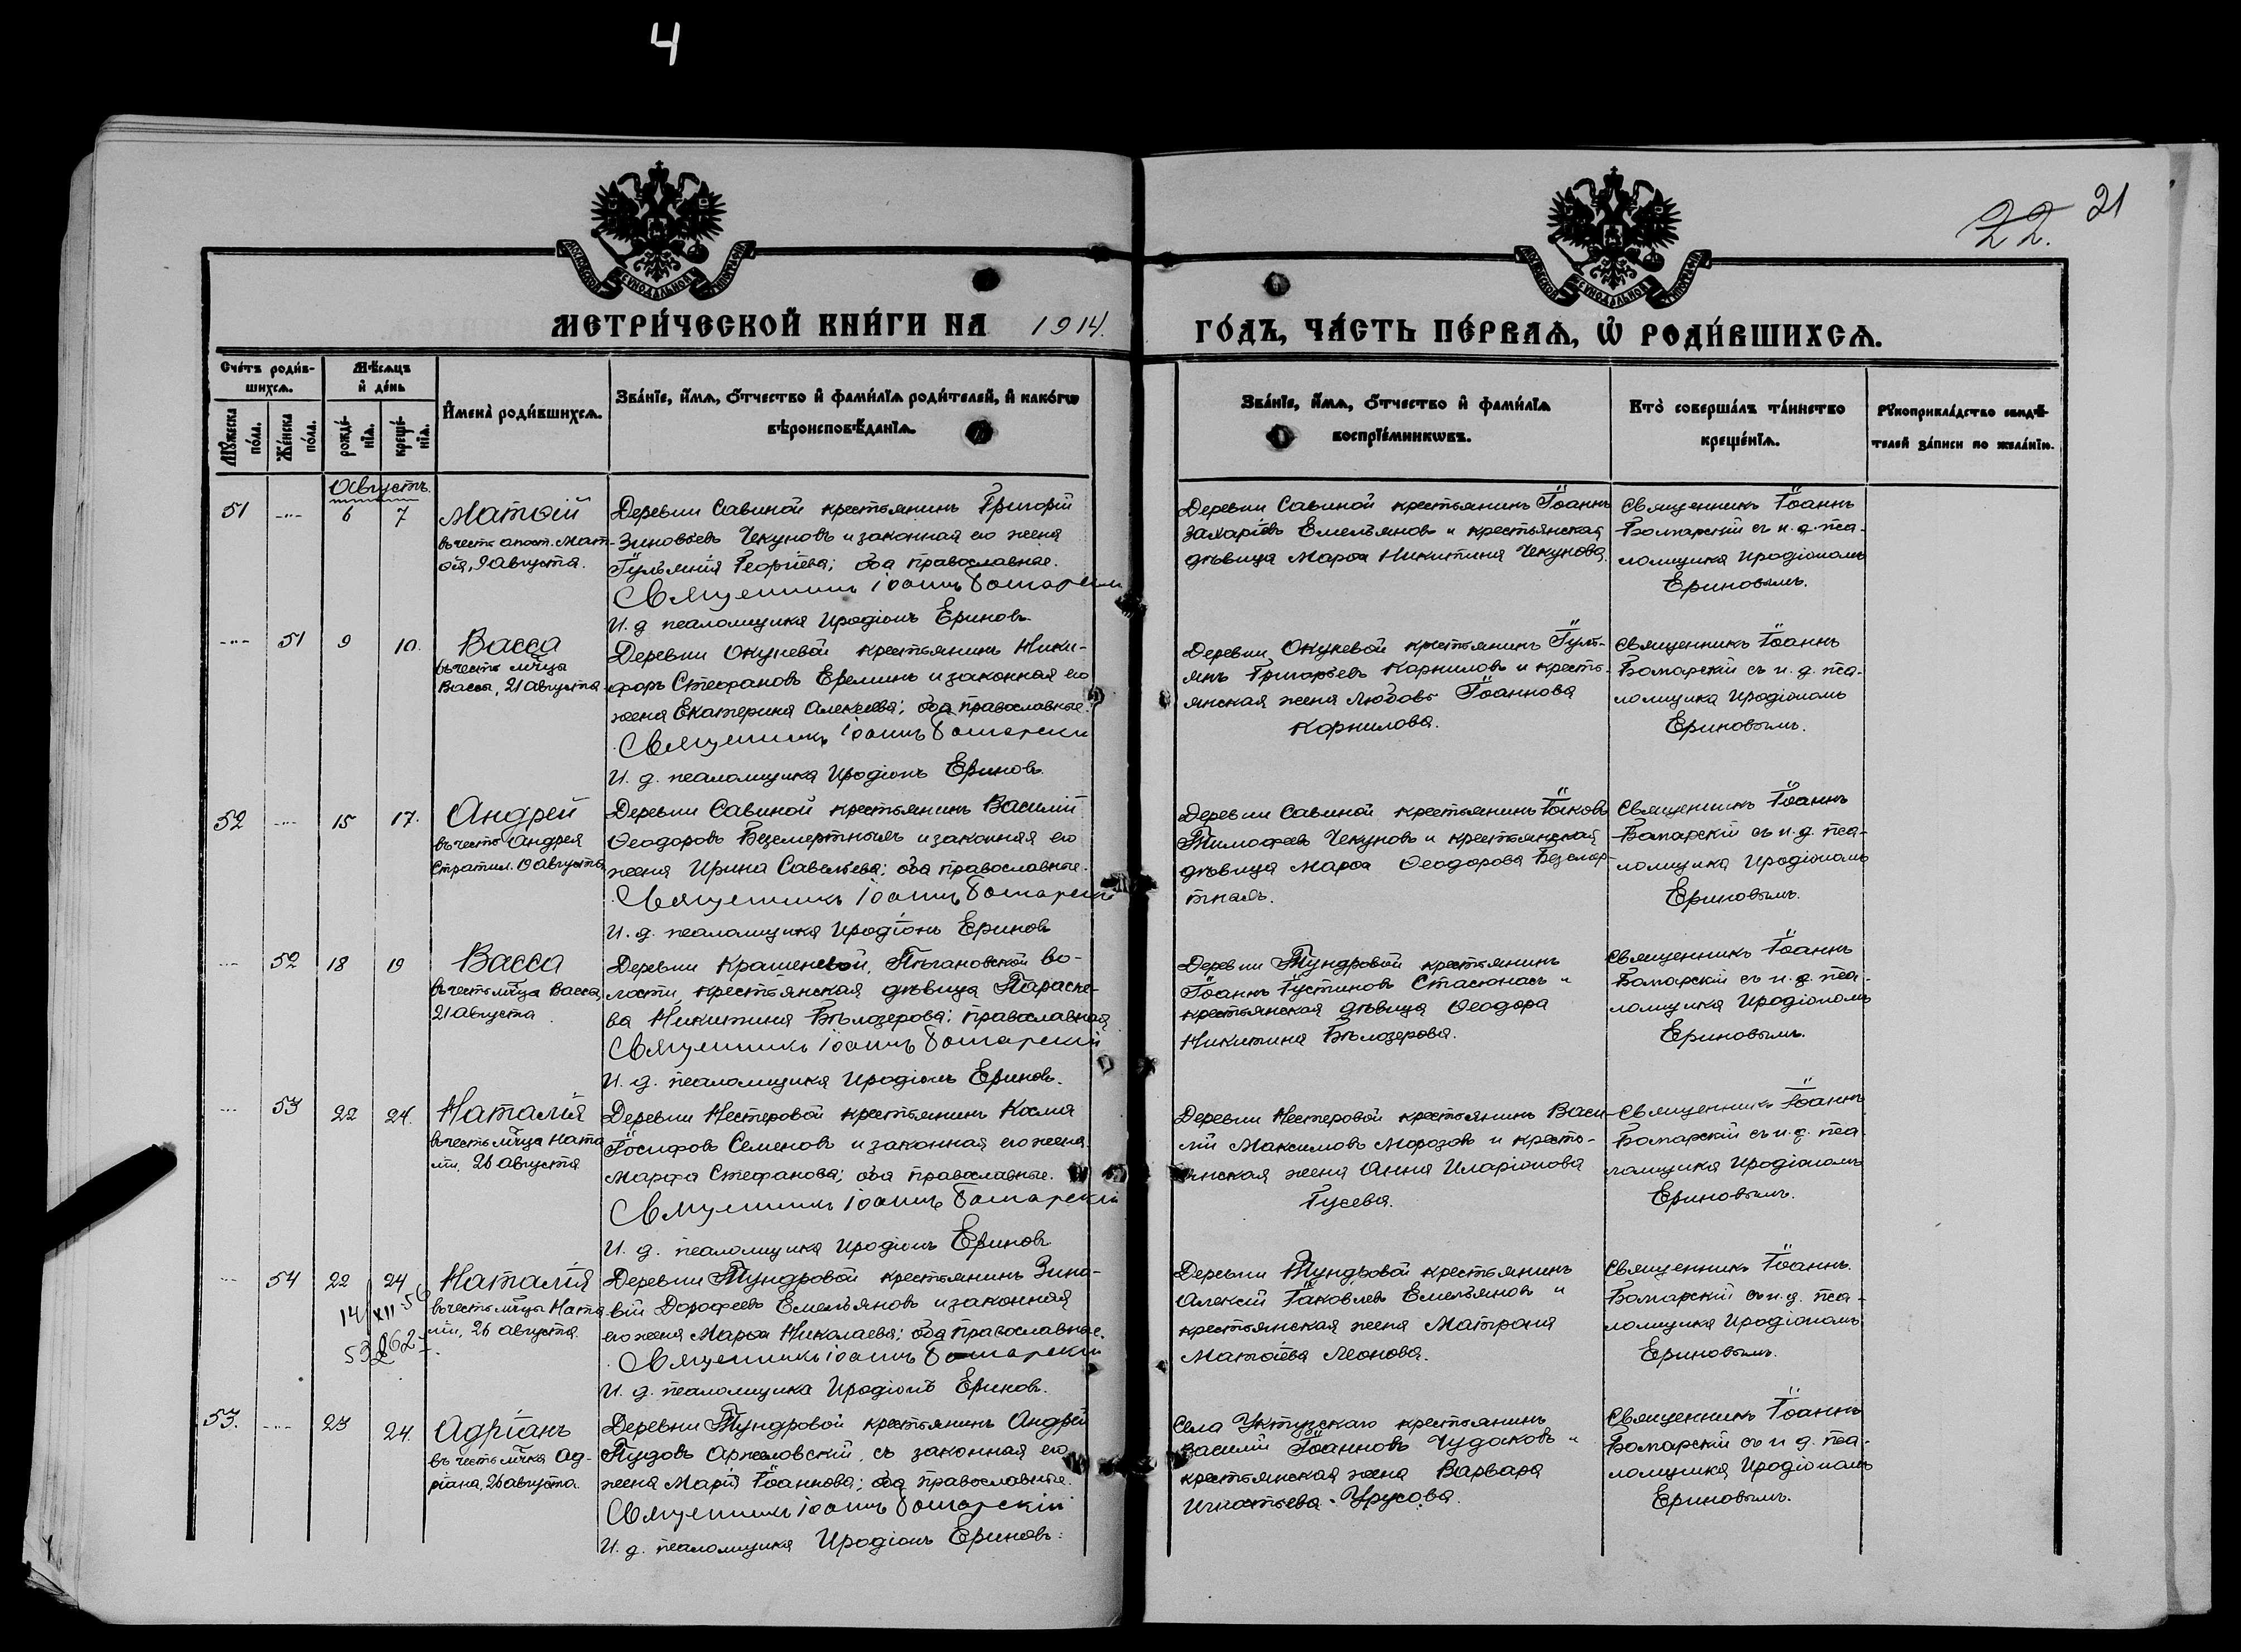 4
22. 21
МОСКОВСКОЙ СѴНОДАЛЬНОЙ ТИПОГРАФІИ
МОСКОВСКОЙ СѴНОДАЛЬНОЙ ТИПОГРАФІИ
МЕТРИ́ЧЕСКОЙ КНИ́ГИ НА 1914.
ГО́ДЪ, ЧА́СТЬ ПЕ́РВАѦ, Ѡ РОДИ́ВШИХСѦ.
Сче́тъ роди́в-
шихсѧ.
Мѣ́сѧцъ
и де́нь
Мꙋ́жеска по́ла.
Же́нска по́ла.
рожде́-нїѧ.
креще́-нїѧ.
Имена̀ роди́вшихсѧ.
Зва́нїе, и́мѧ, ѻ́тчество и фами́лїѧ роди́телей, и како́гѡ
вѣроисповѣ́данїѧ.
Зва́нїе, и́мѧ, ѻ́тчество и фами́лїѧ
воспрїе́мникѡвъ.
Кто̀ соверша́лъ та́инство
креще́нїѧ.
Рꙋкоприкла́дство свидѣ́-
телей за́писи по жела́нїю.
Августъ.
51 -"- 6 7
Матѳій
въ честь апост. Мат-
ѳія, 9 Августа.
Деревни Савиной крестьянинъ Григорій
Зиновьевъ Чекуновъ и законная его жена
Іульянія Георгіева; оба православные.
Священникъ Іоаннъ Бомарскій
И. д. псаломщика Иродіонъ Ериновъ.
Деревни Савиной крестьянинъ Іоаннъ
Захаріевъ Емельяновъ и крестьянская
дѣвица Марѳа Никитина Чекунова.
Священникъ Іоаннъ
Бомарскій съ и. д. пса-
ломщика Иродіономъ
Ериновымъ.
-"- 51 9 10.
Васса
въ честь мц̃цы
Вассы, 21 Августа
Деревни Окуневой крестьянинъ Ники-
форъ Стефановъ Ереминъ и законная его
жена Екатерина Алексеева; оба православные.
Священникъ Іоаннъ Бомарскій
И. д. псаломщика Иродіонъ Ериновъ.
Деревни Окуневой крестьянинъ Іуль-
янъ Григорьевъ Корниловъ и кресть-
янская жена Любовь Іоаннова
Корнилова.
Священникъ Іоаннъ
Бомарскій съ и. д. пса-
ломщика Иродіономъ
Ериновымъ.
52 -"- 15 17.
Андрей
въ честь Андрея
Стратил. 19 Августа
Деревни Савиной крестьянинъ Василій
Ѳеодоровъ Безсмертныхъ и законная его
жена Ирина Савельева; оба православные.
Священникъ Іоаннъ Бомарскій
И. д. псаломщика Иродіонъ Ериновъ
Деревни Савиной крестьянинъ Іаковъ
Тимофеевъ Чекуновъ и крестьянская
дѣвица Марѳа Ѳеодорова Безсмер-
тныхъ.
Священникъ Іоаннъ
Бомарскій съ и. д. пса-
ломщика Иродіономъ
Ериновымъ.
-"- 52 18 19
Васса
въ честь мц̃ца Васса
21 Августа
Деревни Крашеневой, Пѣгановской во-
лости, крестьянская дѣвица Параске-
ва Никитина Бѣлозерова; православная
Священникъ Іоаннъ Бомарскій
И. д. псаломщика Иродіонъ Ериновъ.
Деревни Тундровой крестьянинъ
Іоаннъ Іустиновъ и
крестьянская дѣвица Ѳеодора
Никитина Бѣлозерова.
Священникъ Іоаннъ
Бомарскій съ и. д. пса-
ломщика Иродіономъ
Ериновымъ.
-"- 53 22 24.
Наталія
въ честь мц̃ца Ната
ліи, 26 Августа
Деревни Нестеровой крестьянинъ Косма
Іосифовъ Семеновъ и законная его жена
Марфа Стефанова; оба православные.
Священникъ Іоаннъ Бомарскій
И. д. псаломщика Иродіонъ Ериновъ
Деревни Нестеровой крестьянинъ Васи-
лій Максимовъ Морозовъ и кресть-
янская жена Анна Иларіонова
Гусева.
Священникъ Іоаннъ
Бомарскій съ и. д. пса-
ломщика Иродіономъ
Ериновымъ.
-"- 54 22 24
14/XII-56
Наталія
въ честь мц̃цы Ната
ліи, 26 августа.
Деревни Тундровой крестьянинъ Зино-
вій Дорофеевъ Емельяновъ и законная
его жена Марѳа Николаева; оба православные.
Священникъ Іоаннъ Бомарскій
И. д. псаломщика Иродіонъ Ериновъ.
Деревни Тундровой крестьянинъ
Алексій Іаковлевъ Емельяновъ и
крестьянская жена Матрона
Матѳіева Леонова.
Священникъ Іоаннъ.
Бомарскій съ и. д. пса-
ломщика Иродіономъ
Ериновымъ.
53. -"- 23 24.
Адріанъ
въ честь мч̃ка Ад-
ріана, 26 августа.
Деревни Тундровой крестьянинъ Андрей
Тудовъ съ законная его
жена Марія Іоаннова; оба православные.
Священникъ Іоаннъ Бомарскій
И. д. псаломщика Иродіонъ Ериновъ:
Села Уктузскаго крестьянинъ
Василій Іоанновъ Чудаковъ и
крестьянская жена Варвара
Игнатьева Урусова.
Священникъ Іоаннъ
Бомарскій съ и. д. пса-
ломщика Иродіономъ
Ериновымъ.